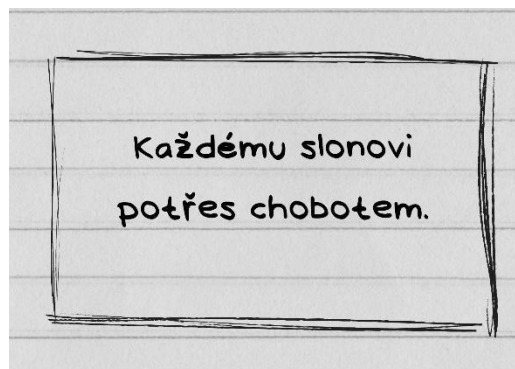 Každému slonovi
potřes chobotem.